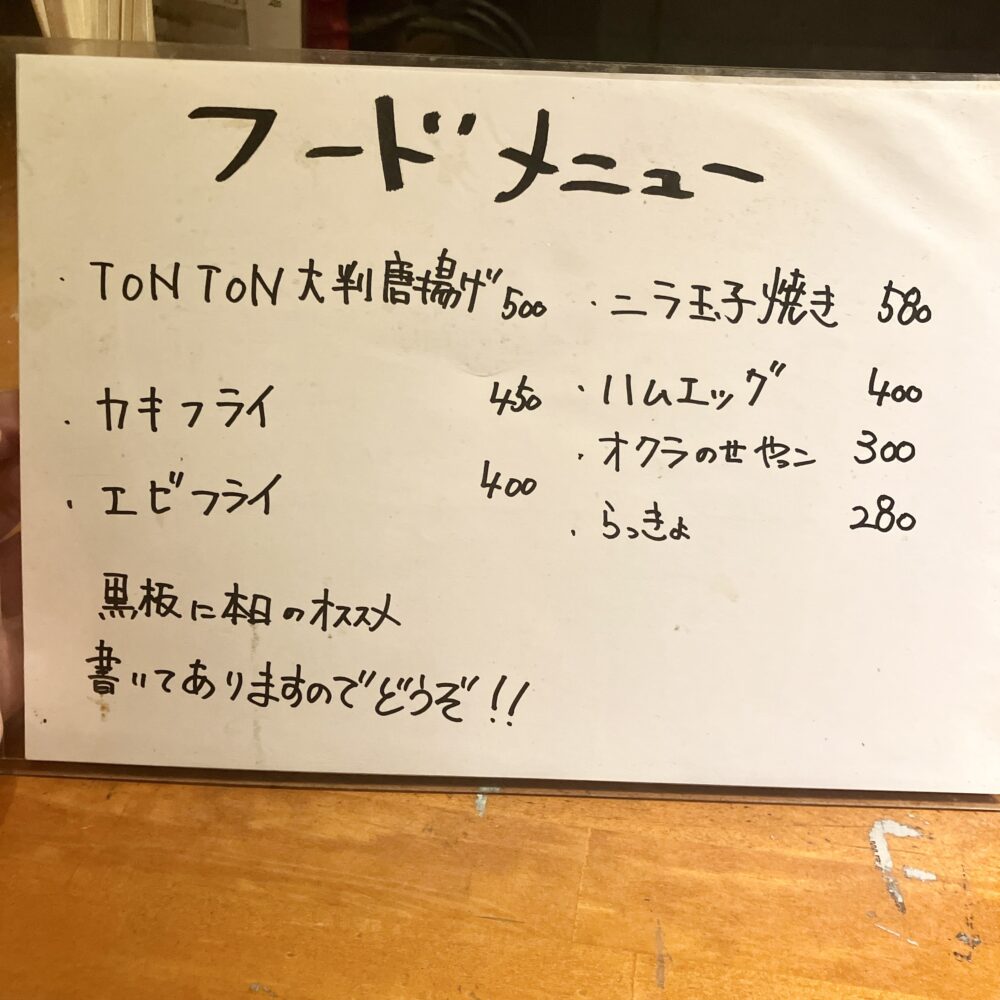 フードメニュー
・TONTON大判唐揚げ 500
・カキフライ 450
・エビフライ 400
・ニラ玉子焼き 580
・ハムエッグ 400
・オクラのせやっコ 300
・らっきょ 280
黒板に本日のオススメ
書いてありますのでどうぞ!!